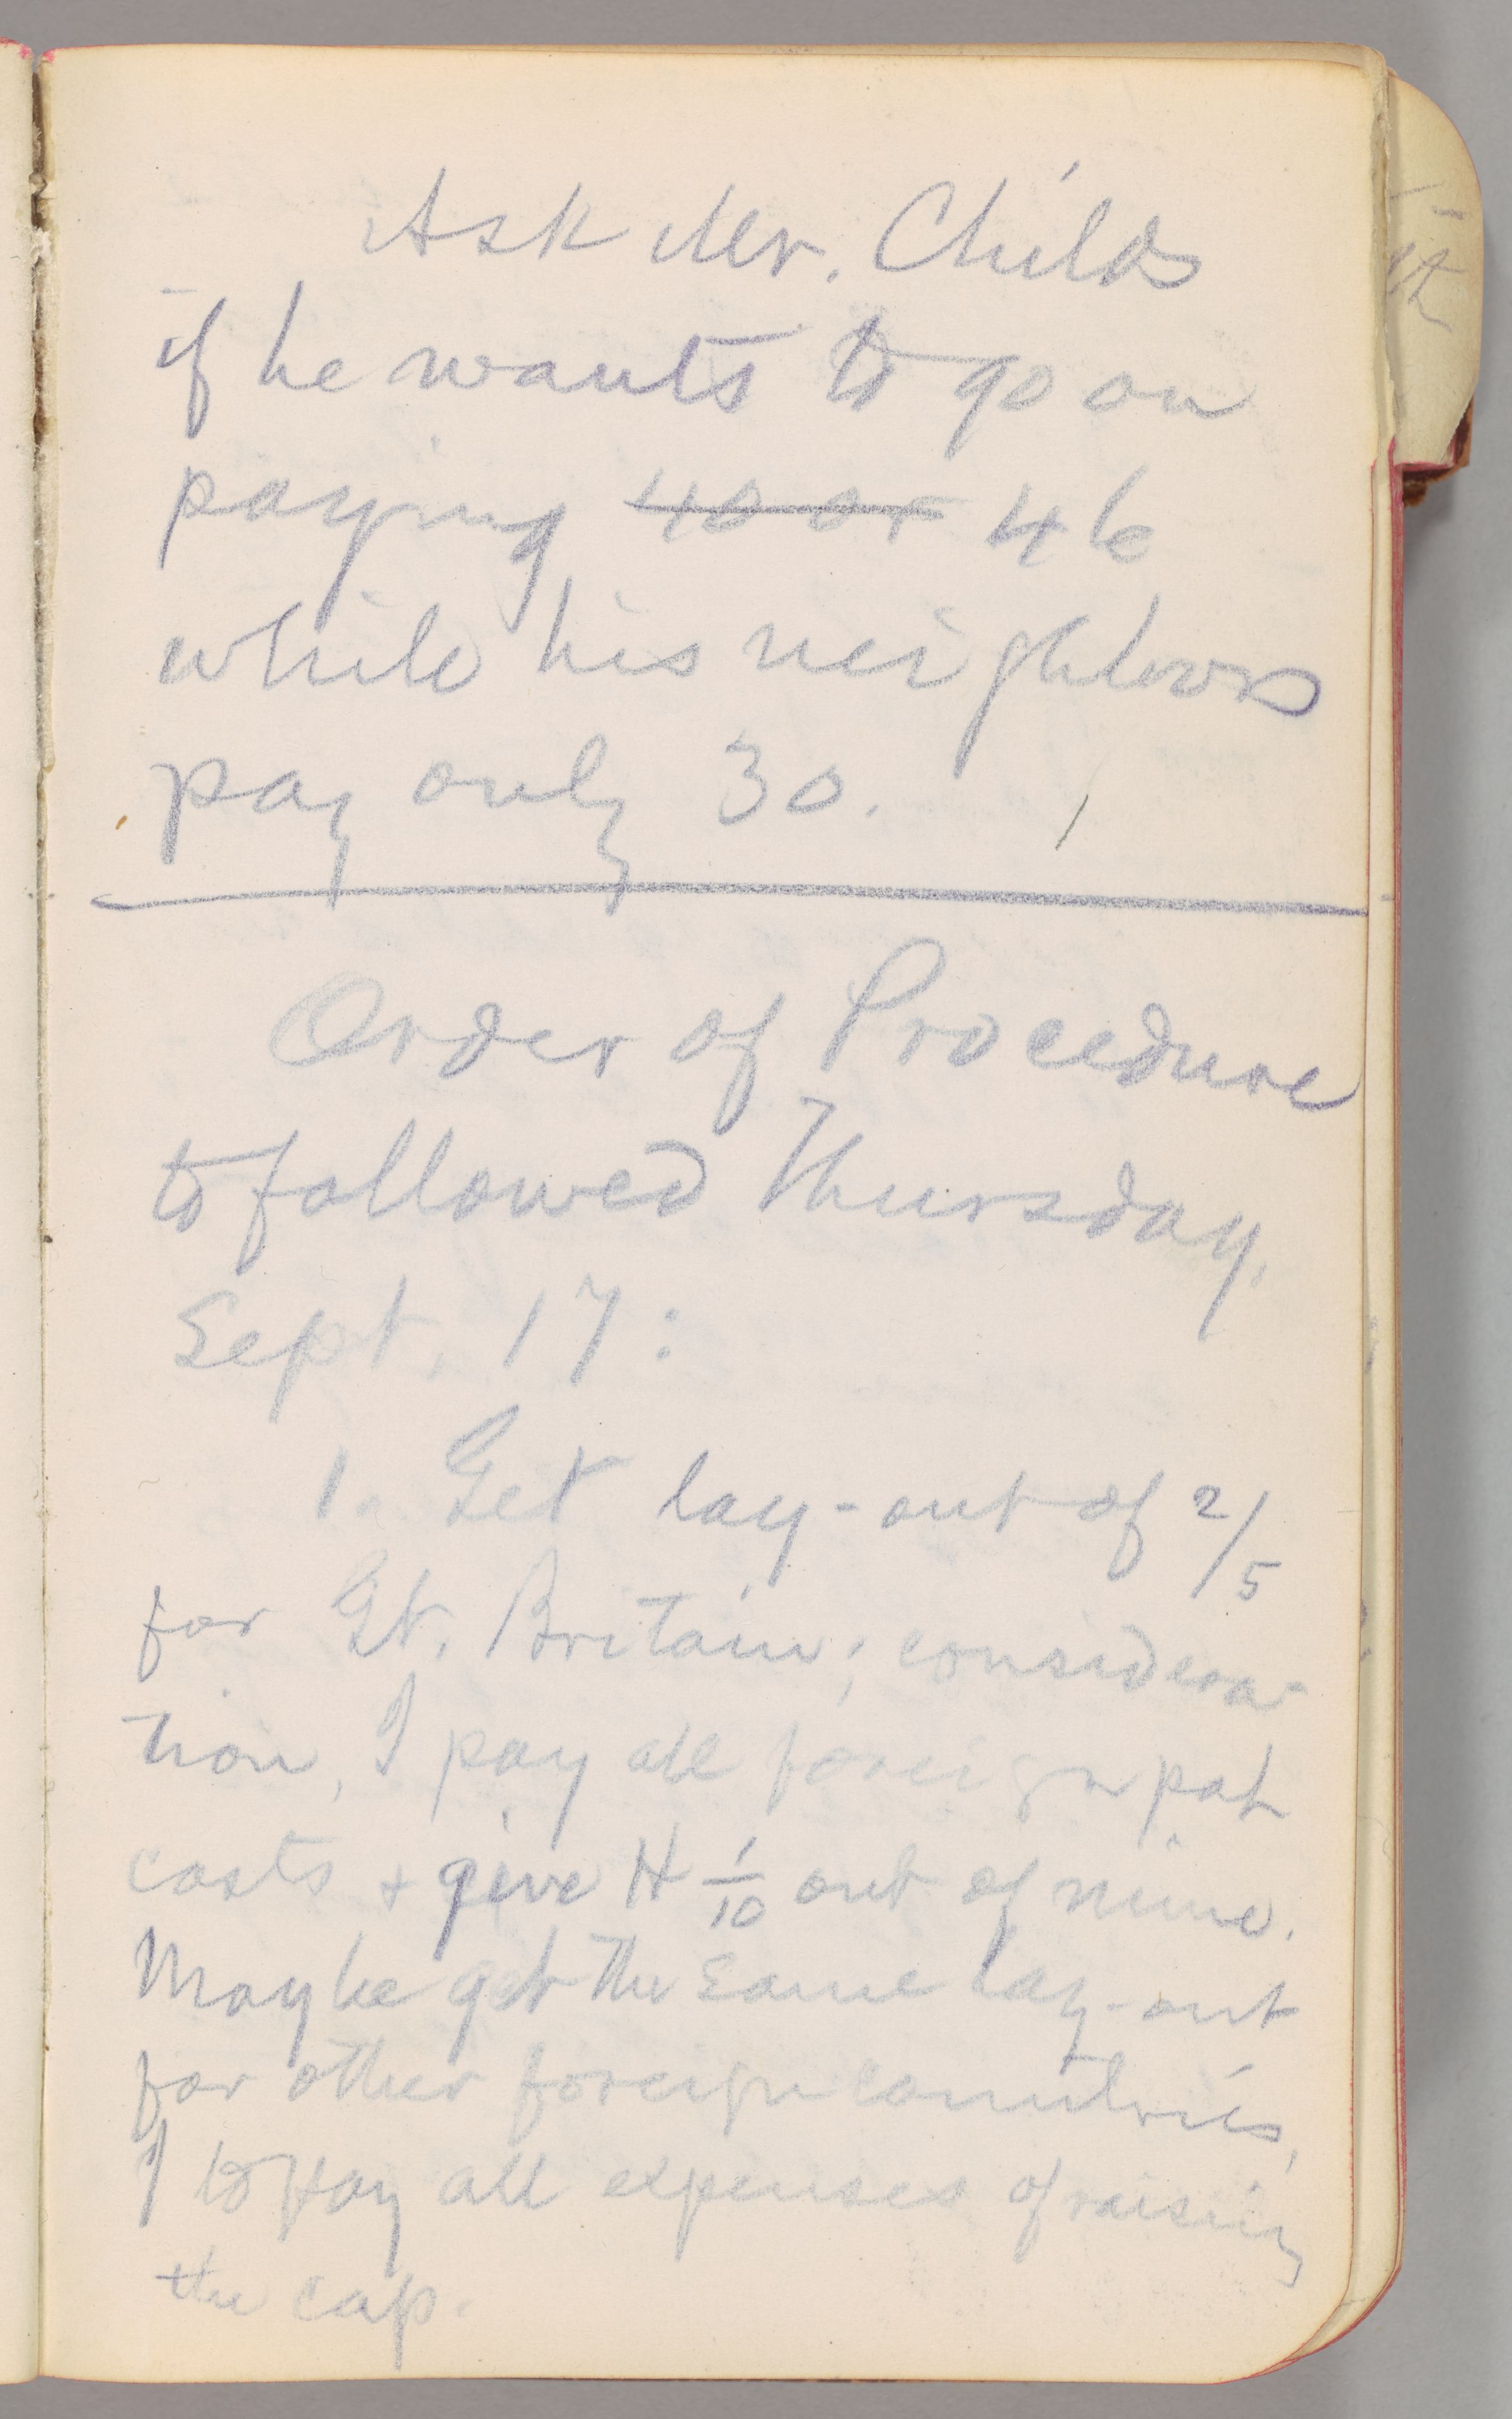 Ask Mr. Childs
if he wants to go on
paying 40 or 46
while his neighbors
pay only 30.
Order of Procedure
to followed Thursday,
Sept. 17:
1. Get lay-out of 2/5
for Gt. Britain; considera-
tion, I pay all foreign pat
costs & give H 1/10 out of mine.
Maybe get the same lay-out
for other foreign countries,
I to pay all expenses of raising
the cap.